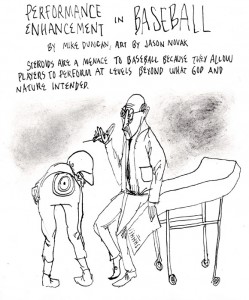 PERFORMANCE
ENHANCEMENT IN BASEBALL
BY MIKE DUNCAN, ART BY JASON NOVAK
STEROIDS ARE A MENACE TO BASEBALL BECAUSE THEY ALLOW
PLAYERS TO PERFORM AT LEVELS BEYOND WHAT GOD AND
NATURE INTENDED.